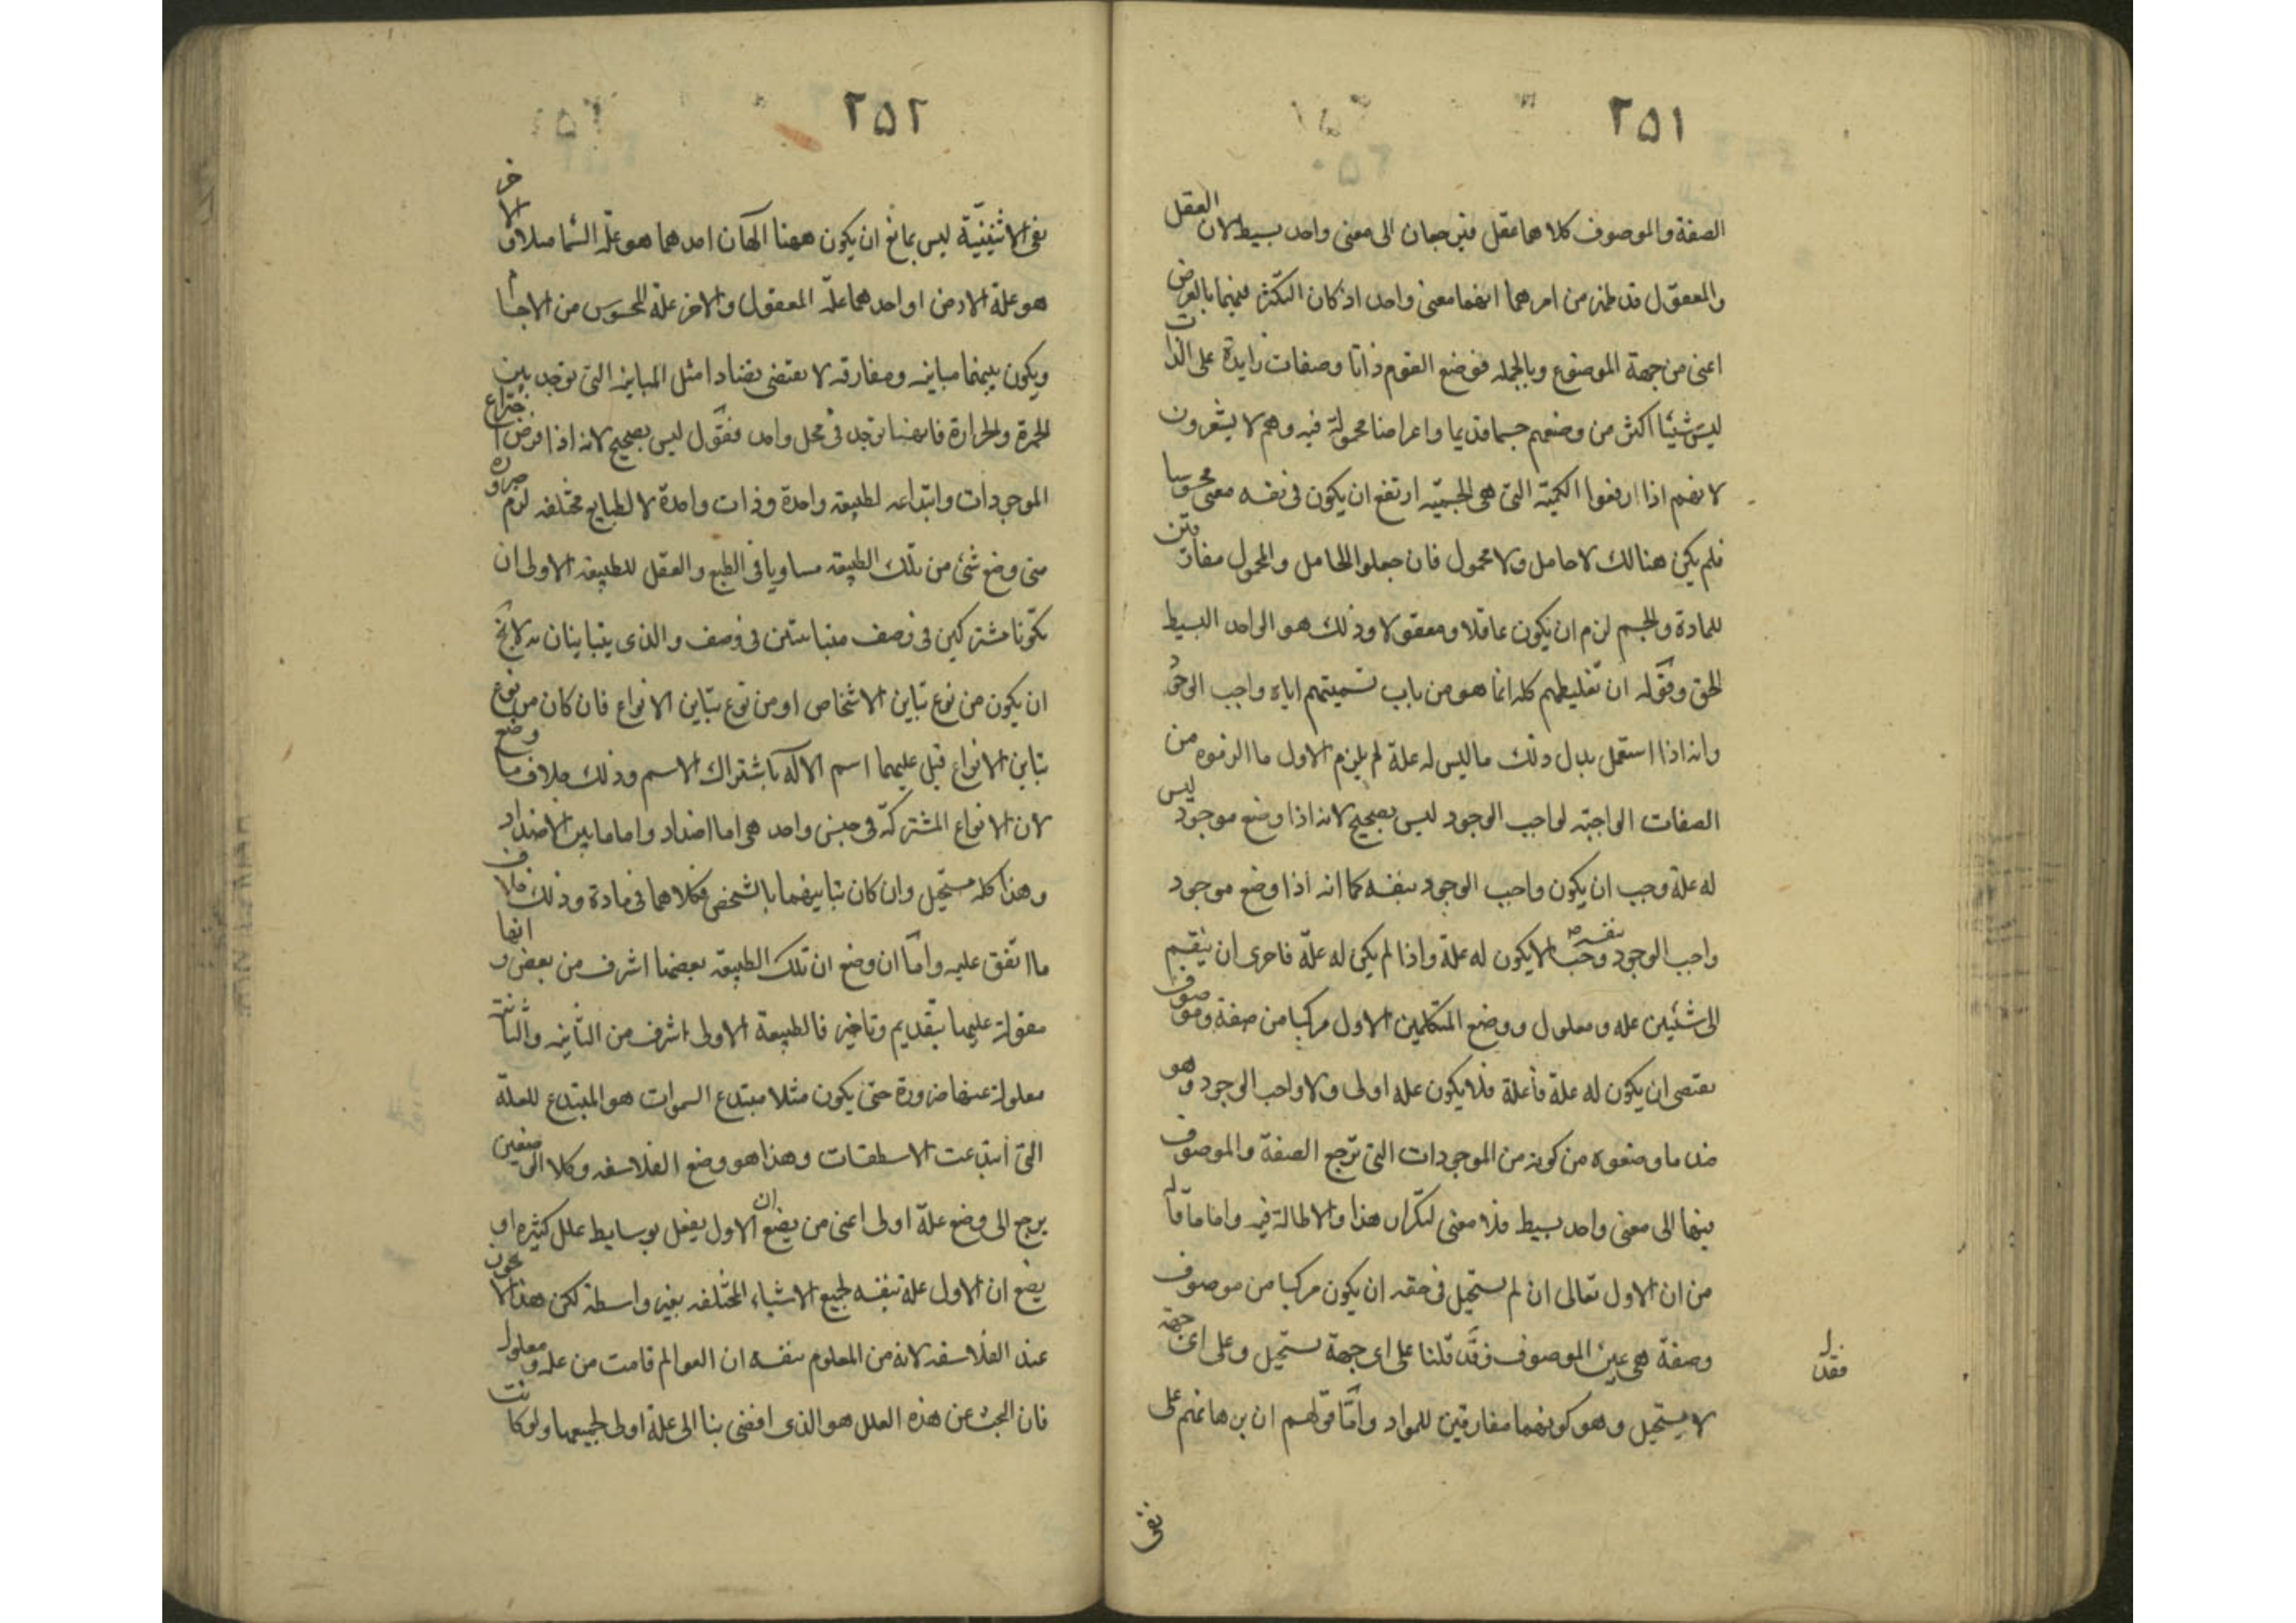 ٢٥١
الصفة والموصوف كلاهما عقل فترجعان الى معنى واحد بسيط لان العقل
والمعقول قد ظهر من امرهما انهما معنى واحد اذ كان التكثر فيهما بالعرض
اعنى من جهة الموضوع وبالجمله فوضع القوم ذاتا وصفات زايدة على الذات
ليس شيئا اكثر من وضعهم جسما قديما واعراضا محمولة فيه وهم لا يشعرون
لانهم اذا ارفعوا الكمية التى هى الجسمية ارتفع ان يكون فى نفسه معنى محسوسا
فلم يكن هنالك لا حامل ولا محمول فان جعلوا الحامل والمحمول مفارقين
للمادة والجسم لزم ان يكون عاقلا ومعقولا وذلك هو الواحد البسيط
الحق وقوله ان تغليطهم كله انما هو من باب تسميتهم اياه واجب الوجود
وانه اذا استعمل بدل ذلك ما ليس له علة لم يلزم الاول ما الزموه من
الصفات الواجبة لواجب الوجود ليس بصحيح لانه اذا وضع موجود ليس
له علة وجب ان يكون واجب الوجود بنفسه كما انه اذا وضع موجود
واجب الوجود بنفسه وجب الا يكون له علة واذا لم يكن له علة فاحرى ان ينقسم
الى شيئين علة ومعلول ووضع المتكلمين الاول مركبا من صفة وموصوف
يقتضى ان يكون له علة فاعلة فلا يكون علة اولى ولا واجب الوجود وهو
ضد ما وضعوه من كونه من الموجودات التى ترجع الصفة والموصوف
فيها الى معنى واحد بسيط فلا معنى لتكرار هذا والاطالة فيه واما ما قاله
من ان الاول تعالى ان لم يستحيل فى حقه ان يكون مركبا من موصوف
وصفة هى عين الموصوف فقد قلنا على اى جهة يستحيل وعلى اى جهة
فقد
لا يستحيل وهو كونهما مفارقين للمواد واما قولهم ان برهانهم على
نفى
٢٥٢
نفى الاثنينية ليس بمانع ان يكون ههنا الهان احدهما هو علة السما مثلا والاخر
هو علة الارض او احدهما علة المعقول والاخر علة المحسوس من الاجسام
ويكون بينهما مباينه ومفارقه لا يقتضى تضادا مثل المباينه التى توجد بين
الحمرة والحرارة فانهما توجد فى محل واحد فقول ليس بصحيح لانه اذا فرض اختراع
الموجودات وابتداعه لطبيعه واحدة وذات واحدة لا لطبايع مختلفه لزم ضروره
متى وضع شئ من تلك الطبيعه مساويا فى الطبع والعقل للطبيعه الاولى ان
يكونا مشتركين فى وصف متباينين فى وصف والذى يتباينان به لا يخ
ان يكون من نوع تباين الاشخاص او من نوع تباين الانواع فان كان من نوع
تباين الانواع قيل عليهما اسم الاله باشتراك الاسم وذلك خلاف ما وضع
لان الانواع المشتركة فى جنس واحد هى اما اضداد واما ما بين الاضداد
وهذا كله مستحيل وان كان تباينهما بالشخص فكلاهما فى مادة وذلك خلاف
ما اتفق عليه واما ان وضع ان تلك الطبيعه بعضها اشرف من بعض وانها
مقولة عليهما بتقديم وتاخير فالطبيعة الاولى اشرف من الثانيه والثانية
معلولة عنها ضرورة حتى يكون مثلا مبتدع السموات هو المبتدع للعلة
التى ابتدعت الاسطقسات وهذا هو وضع الفلاسفه وكلا الوضعين
يرجع الى وضع علة اولى اعنى من يضع ان الاول يفعل بوسايط علل كثيره او
يضع ان الاول علة بنفسه لجميع الاشياء المختلفه بغير واسطة لكن هذا لا يجوز
عند الفلاسفه لانه من المعلوم بنفسه ان العوالم قامت من علة ومعلول
فان البحث عن هذه العلل هو الذى افضى بنا الى علة اولى لجميعها ولو كانت